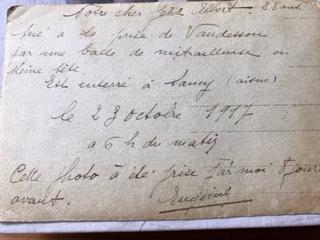 Notre cher ptit Albert. 28 ans
tué à la prise de Vaudesson
par une balle de mitrailleuse en
pleine tête
Est enterré à Sancy (aisne)
le 23 octobre 1917
à 6 h du matin
Cette photo à été prise par moi 8 jours
avant.